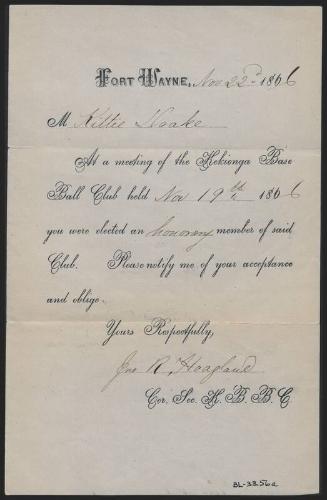 Fort Wayne, Nov 22d 1866
M Kittie Hoake
At a meeting of the Kekionga Base
Ball Club held Nov 19th 1866
you were elected an honorary member of said
Club. Please notify me of your acceptance
and oblige.
Yours Respectfully,
Jno R. Hoagland
Cor. Sec. K. B. B. C.
BL-33.56a